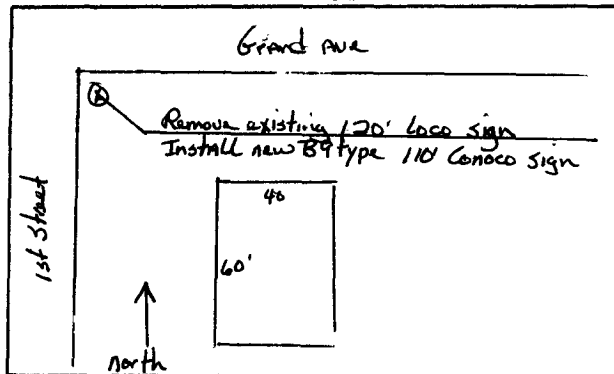 Grand Ave
Remove existing 120' Loco Sign
Install new B9 type 110' Conoco Sign
1st Street
40
60'
North